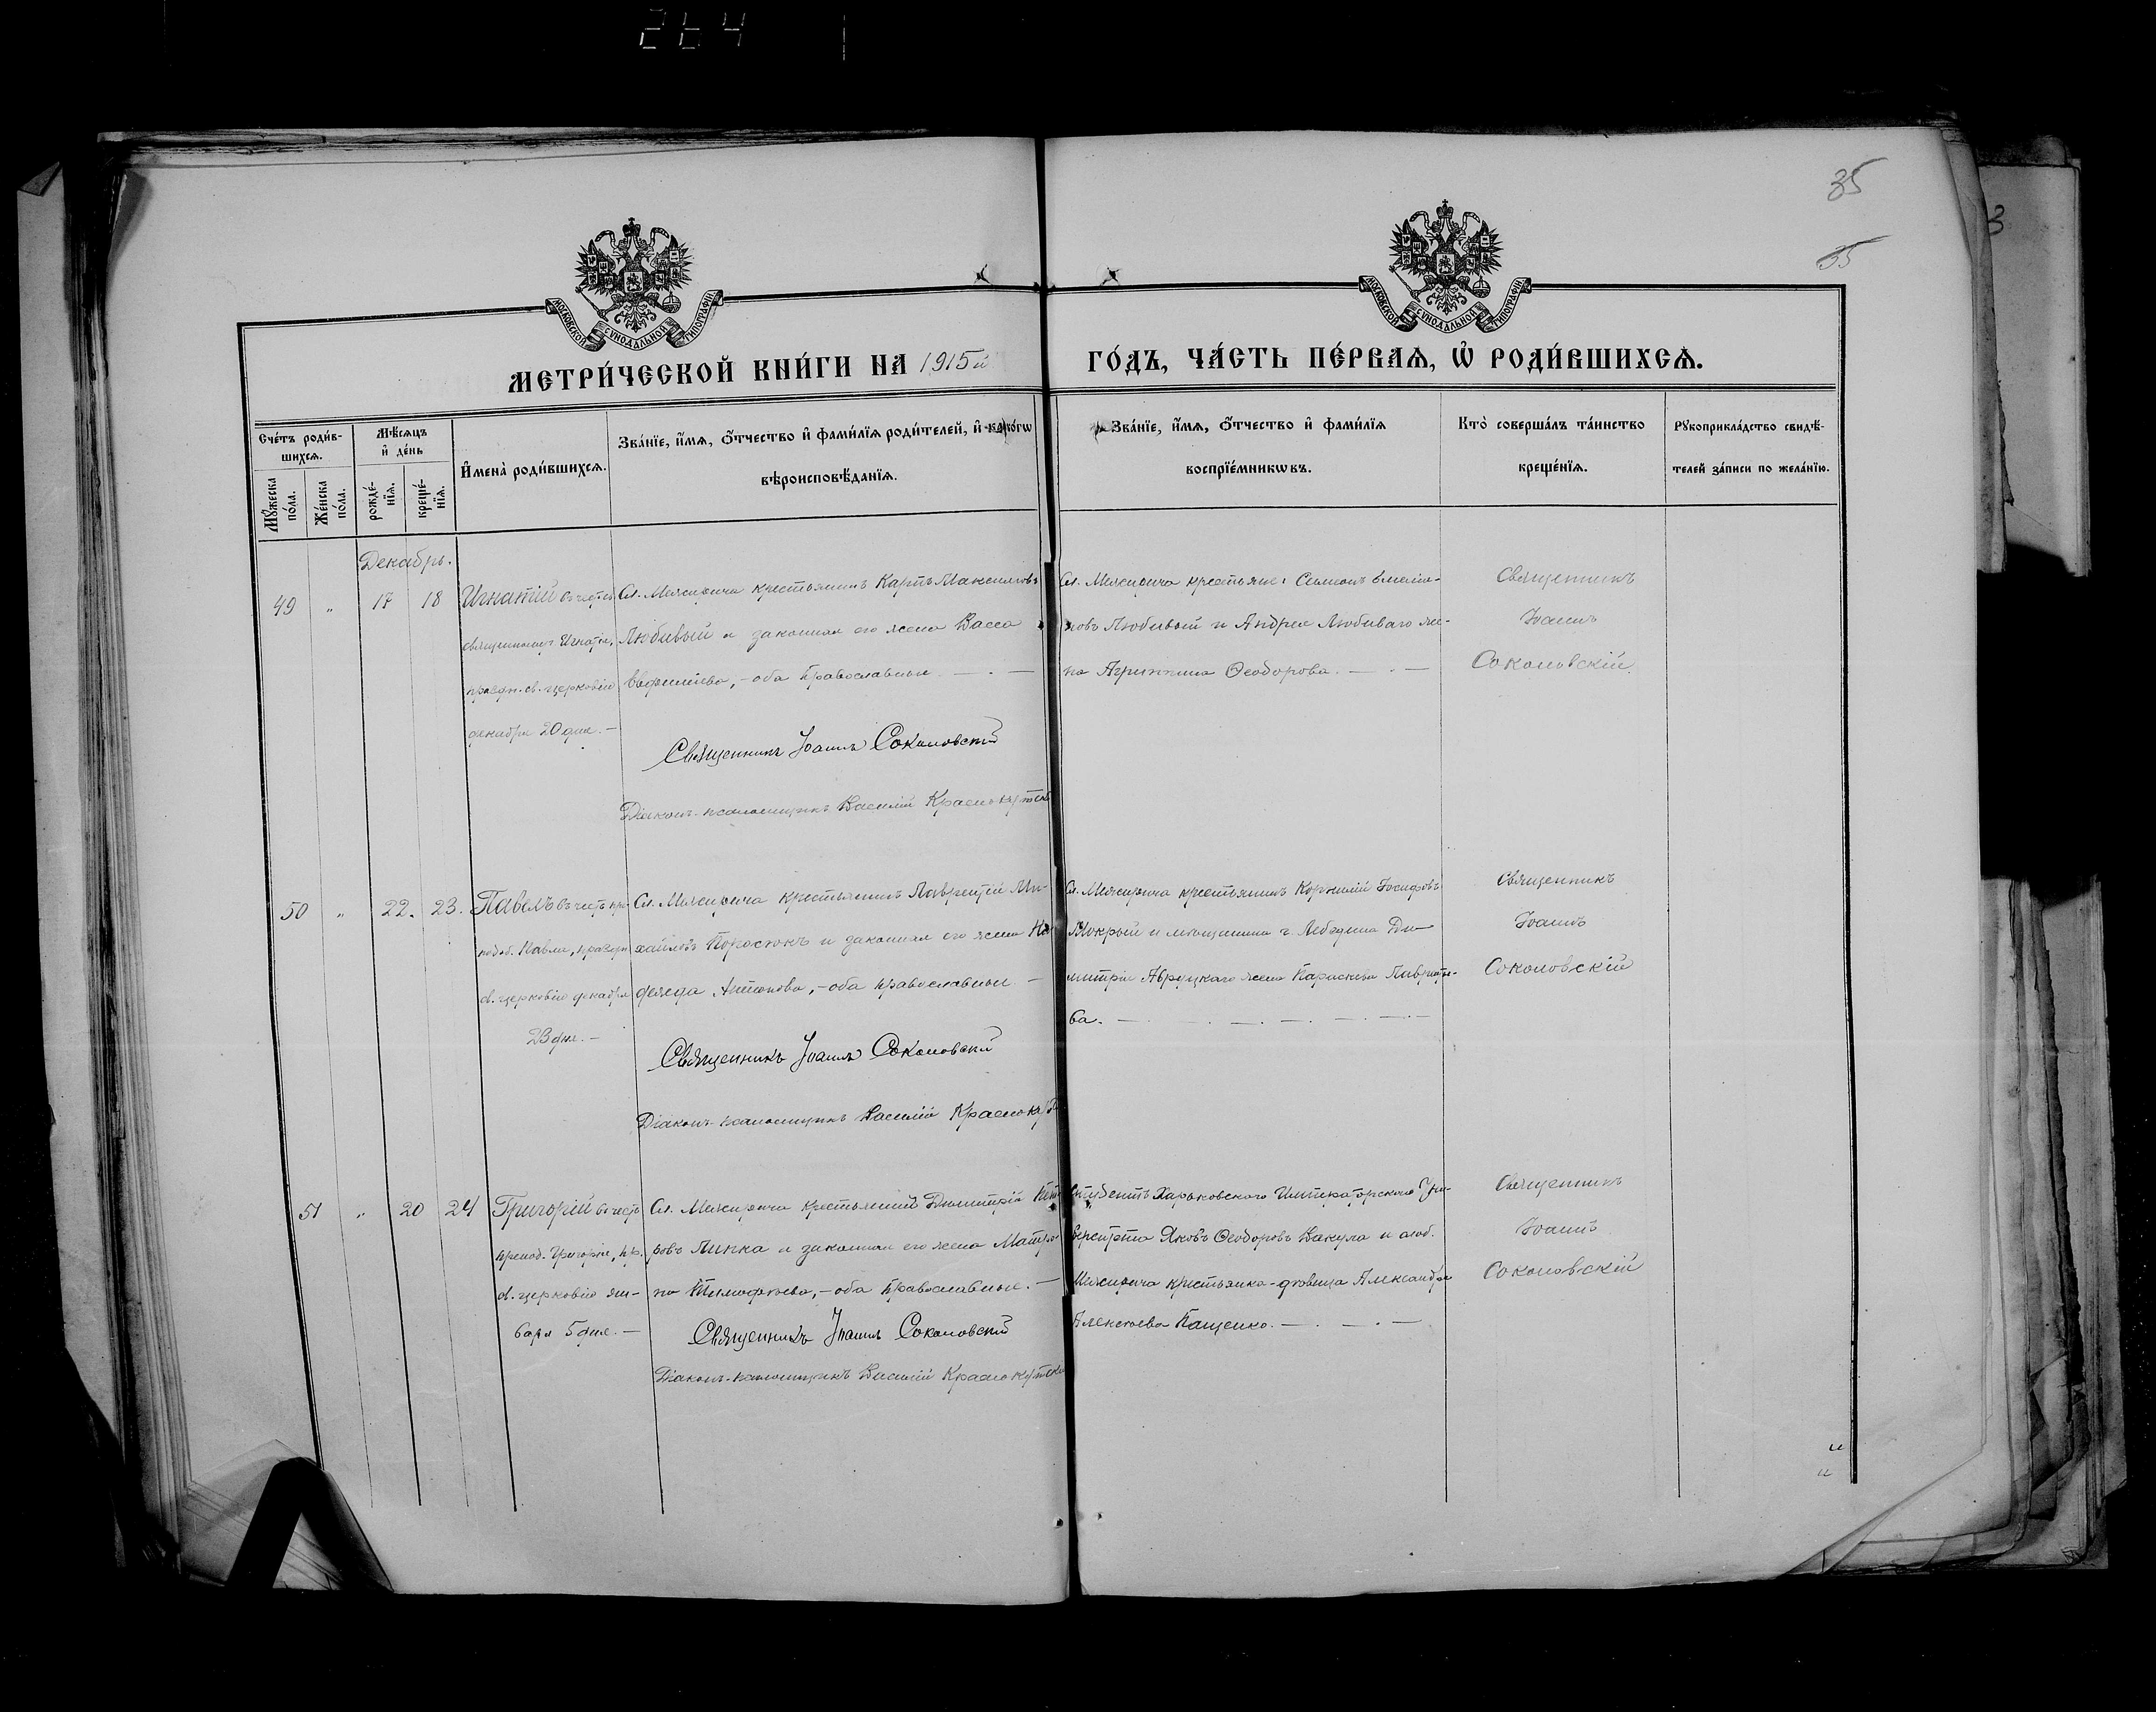 264
35
35
МОСКОВСКОЙ СѴНОДАЛЬНОЙ ТИПОГРАФІИ
МОСКОВСКОЙ СѴНОДАЛЬНОЙ ТИПОГРАФІИ
МЕТРИ́ЧЕСКОЙ КНИ́ГИ НА 1915й ГО́ДЪ, ЧА́СТЬ ПЕ́РВАѦ, Ѡ҆ РОДИ́ВШИХСѦ.
Сче́тъ роди́в-
шихсѧ.
Мꙋ́жеска по́ла.
Же́нска по́ла.
Мѣ́сѧцъ и҆ де́нь
рожде́-
нїѧ.
креще́-
нїѧ.
И҆мена̀ роди́вшихсѧ.
Зва́нїе, и҆́мѧ, ѻ҆́тчество и҆ фами́лїѧ роди́телей, и҆ како́гѡ
вѣроисповѣ́данїѧ.
Зва́нїе, и҆́мѧ, ѻ҆́тчество и҆ фами́лїѧ
воспрїе́мникѡвъ.
Кто̀ соверша́лъ та́инство
креще́нїѧ.
Рꙋкоприкла́дство свидѣ́-
телей за́писи по жела́нїю.
Декабрь.
49 " 17 18
Игнатій въ честь
священномуч. Игнатія,
праздн. св. церковію
декабря 20 дня. —
Сл. Межирича крестьянинъ Карпъ Максимовъ
Любивый и законная его жена Васса
Евфиміева, – оба православные. —
Священникъ Іоаннъ Соколовскій
Діаконъ-псаломщикъ Василій Краснокутскі
Сл. Межирича крестьяне: Симеонъ Емелія-
новъ Любивый и Андрея Любиваго же-
на Агриппина Ѳеодорова. —
Священникъ
Іоаннъ
Соколовскій.
50 " 22. 23.
Павелъ въ честь пре-
подоб. Павла, праздн
св. церковію декабря
23 дня. —
Сл. Межирича крестьянинъ Лаврентій Ми-
хайловъ Поростюкъ и законная его жена На
дежда Антонова, – оба православные —
Священникъ Іоаннъ Соколовскій
Діаконъ-псаломщикъ Василій Краснокут
Сл. Межирича крестьянинъ Корнилій Іосифовъ
Мокрый и мѣщанина г. Лебедина Ди-
митрія Авруцкаго жена Параскева Лаврентіе-
ва. —
Священникъ
Іоаннъ
Соколовскій
51 " 20 24
Григорій въ честь
препод. Григорія, пр.
св. церковію ян-
варя 5 дня. —
Сл. Межирича крестьянинъ Димитрій Пет
ровъ Линка и законная его жена Матро-
на Тимоѳеева, – оба православные. —
Священникъ Іоаннъ Соколовскій
Діаконъ-псаломщикъ Василій Краснокутскі
Студентъ Харьковского Императорского Уни-
верситета Яковъ Ѳеодоровъ Вакула и слоб.
Межирича крестьянка-дѣвица Александра
Алексѣева Пащенко. —
Священникъ
Іоаннъ
Соколовскій